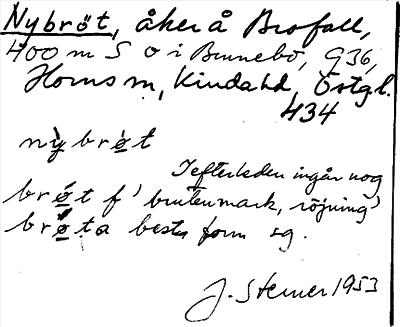 Nybröt, åker å Brofall,
400 m S o i Brunnebo, G36,
Horns sn, Kinda hd, Östgl.
434
nỳbrøt
I efterleden ingår nog
brø̀t f 'bruten mark, röjning'
brø̀ta best. form sg.
J. Sterner 1953